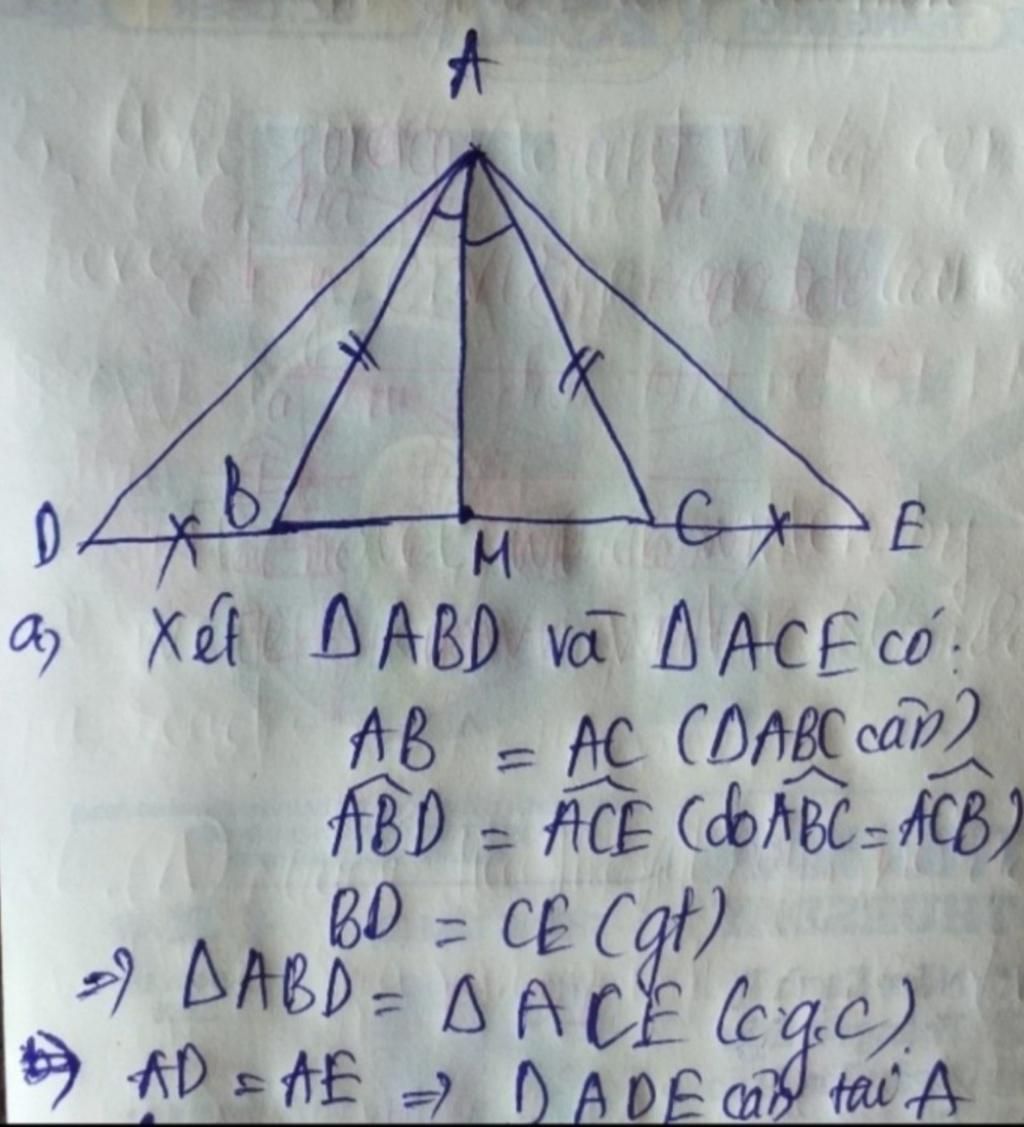 A
D B M C E
a, Xét ΔABD và ΔACE có:
AB = AC (ΔABC cân)
\widehat{ABD} = \widehat{ACE} (do \widehat{ABC} = \widehat{ACB})
BD = CE (gt)
=> ΔABD = ΔACE (c.g.c).
=> AD = AE => ΔADE cân tại A